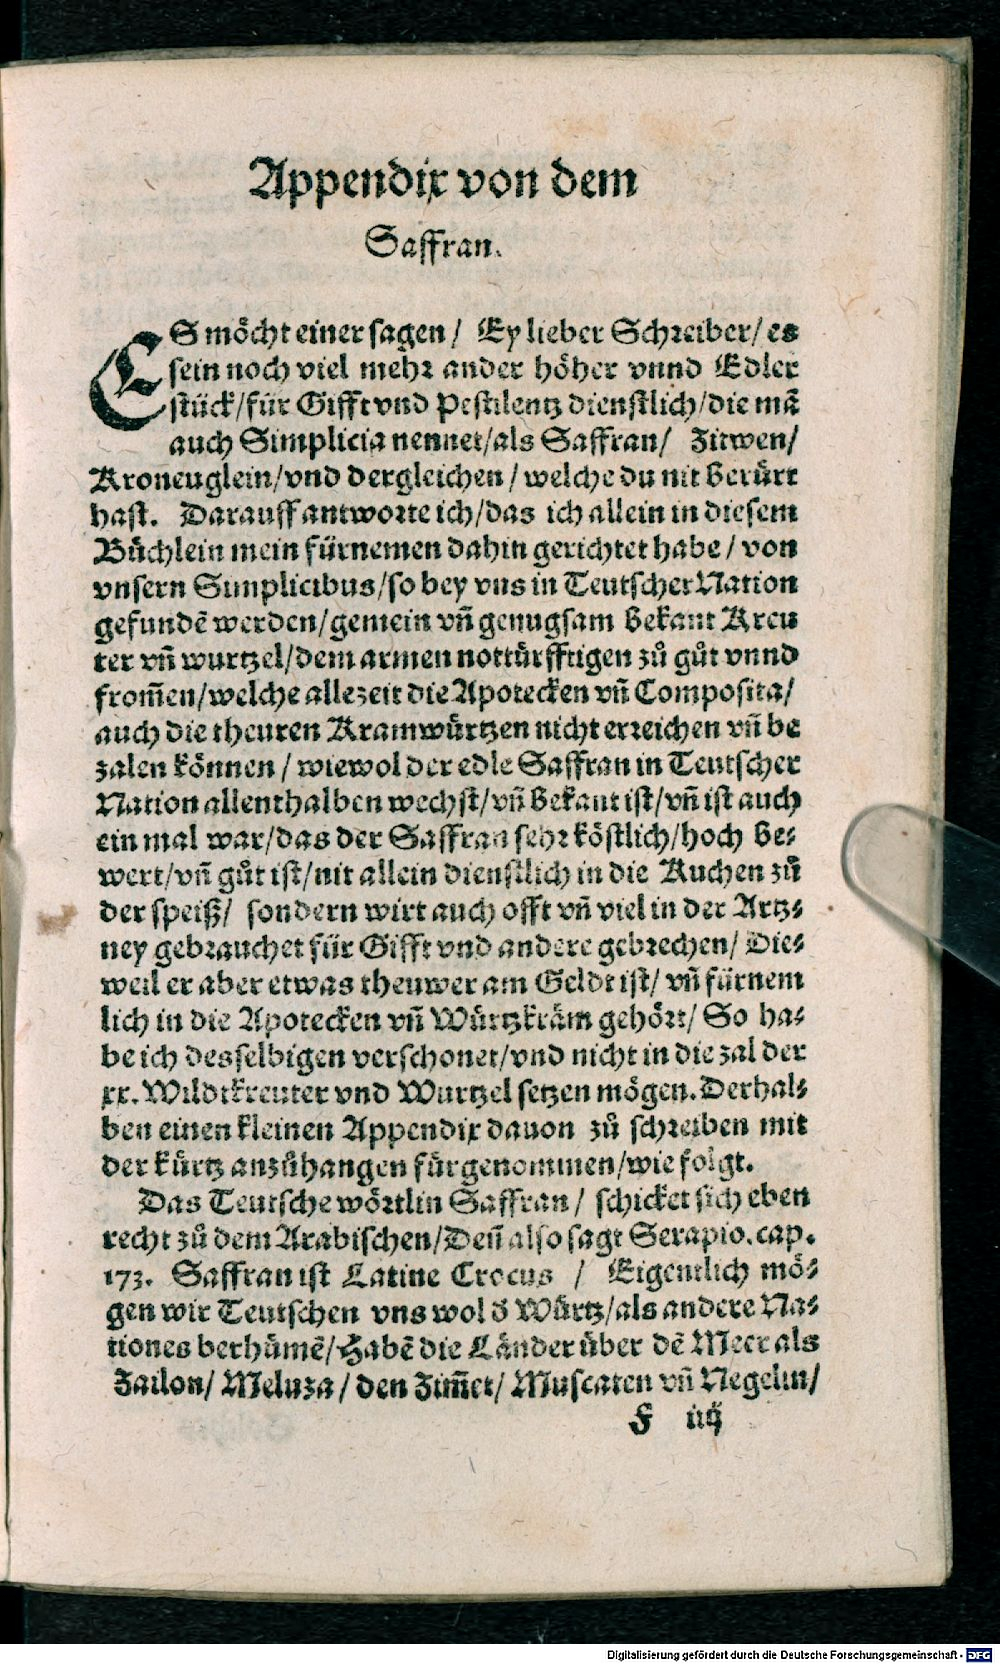 Appendix von dem
Saffran.
ES möcht einer sagen / Ey lieber Schreiber / es
sein noch viel mehr ander höher vnnd Edler
stück / für Gifft vnd Pestilentz dienstlich / die mã
auch Simplicia nennet / als Saffran / Zitwen /
Kroneuglein / vnd dergleichen / welche du nit berürt
hast. Darauff antworte ich / das ich allein in diesem
Büchlein mein fürnemen dahin gerichtet habe / von
vnsern Simplicibus / so bey vns in Teutscher Nation
gefundẽ werden / gemein vñ genugsam bekant Kreu
ter vñ wurtzel / dem armen nottürfftigen zů gůt vnnd
from̃en / welche allezeit die Apotecken vñ Composita /
auch die theuren Kramwürtzen nicht erreichen vñ be
zalen können / wiewol der edle Saffran in Teutscher
Nation allenthalben wechst / vñ bekant ist / vñ ist auch
ein mal war / das der Saffran sehr köstlich / hoch be⸗
wert / vñ gůt ist / nit allein dienstlich in die Kuchen zů
der speiß / sondern wirt auch offt vñ viel in der Artz⸗
ney gebrauchet für Gifft vnd andere gebrechen / Die⸗
weil er aber etwas theuwer am Geldt ist / vñ fürnem
lich in die Apotecken vñ Würtzkräm gehört / So ha⸗
be ich desselbigen verschonet / vnd nicht in die zal der
xx. Wildtkreuter vnd Wurtzel setzen mögen. Derhal⸗
ben einen kleinen Appendix dauon zů schreiben mit
der kürtz anzůhangen fürgenommen / wie folgt.
Das Teutsche wörtlin Saffran / schicket sich eben
recht zů dem Arabischen / Deñ also sagt Serapio. cap.
173. Saffran ist Latine Crocus / Eigentlich mö⸗
gen wir Teutschen vns wol d̃ Würtz / als andere Na⸗
tiones berhümẽ / Habẽ die Länder über dẽ Meer als
Zailon / Meluza / den Zim̃et / Muscaten vñ Negelin /
F iiij
Digitalisierung gefördert durch die Deutsche Forschungsgemeinschaft - DFG